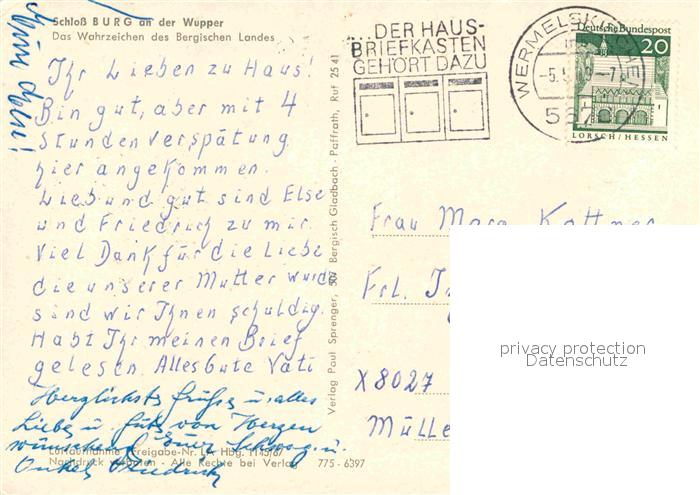 Schloß BURG an der Wupper
Das Wahrzeichen des Bergischen Landes
Ihr Lieben zu Haus!
Bin gut, aber mit 4
Stunden Verspätung
hier angekommen.
Lieb und gut sind Else
und Friedrich zu mir.
Viel Dank für die Liebe
die unserer Mutter wurde
sind wir Ihnen schuldig.
Habt Ihr meinen Brief
gelesen. Alles Gute Vati
Herzlichste Grüße u. alles
Liebe u. Gute von Herzen
wünschend Euer Schwag. u.
Onkel Friedrich
Luftaufnahme Freigabe-Nr. LA Hbg. 1145/67
Nachdruck verboten - Alle Rechte bei Verlag 775-6397
Verlag Paul Sprenger, 507 Bergisch Gladbach - Paffrath, Ruf 2541
...DER HAUS-
BRIEFKASTEN
GEHÖRT DAZU
WERMELSKIRCHEN
567
Deutsche Bundespost
20
LORSCH/HESSEN
Frau Marg. Kattner
Frl.
X8027
Mülle
privacy protection
Datenschutz